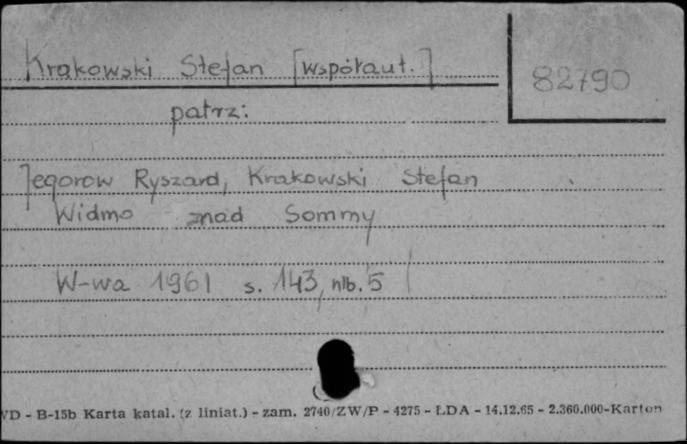 Krakowski Stefan [współaut.]
82790
patrz:
Jegorow Ryszard, Krakowski Stefan
Widmo znad Sommy
W-wa 1961 s. 143, nlb. 5
WD - B-15b Karta katal. (z liniat.) - zam. 2740/ZW/P - 4275 - LDA - 14.12.65 - 2.360.000-Karton